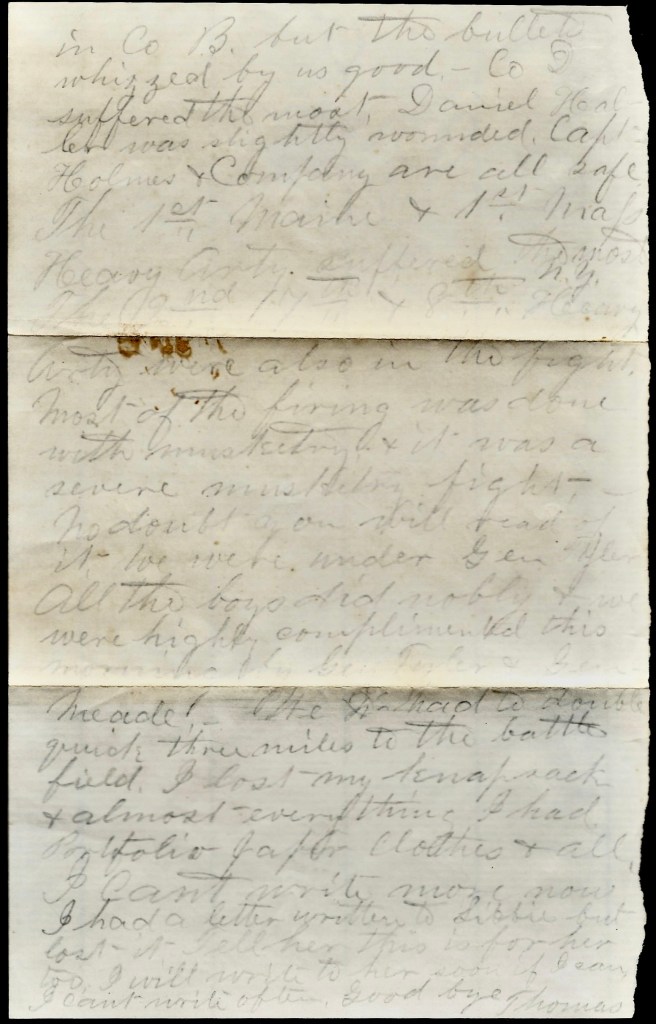 in Co B. but the bullets
whizzed by us good. - Co D
suffered the most, Daniel
ler was slightly wounded. Capt
Holmes & Company are all safe
The 1st Maine & 1st Mass
Heavy Arty. suffered the most
N.Y.
The 2nd 7th & 8th Heavy
Arty were also in the fight.
Most of the firing was done
with musketry & it was a
severe musketry fight, -
No doubt you will read of
it we were under Gen Tyler
All the boys did nobly & we
were highly complimented this
morning by Gen Tyler & Gen
Meade! - We had to double
quick three miles to the battle
field. I lost my knapsack
& almost everything I had
Portfolio Paper Clothes & all.
I Cant write more now
I had a letter written to Libbie but
lost it Tell her this is for her
too, I will write to her soon if I can
I cant write often. Good bye Thomas